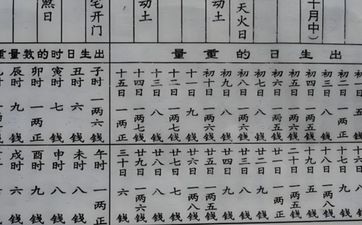 十月中）
天火日
动土
动土
宅开门
煞日
出生日的重量
出生日时的数量重
初二日 一两正
初三日 八钱
初四日 一两五钱
初五日 一两六钱
初六日 一两五钱
初七日 八钱
初八日 一两六钱
初九日 八钱
初十日 一两六钱
十一日 九钱
十二日 一两七钱
十三日 八钱
十四日 一两七钱
十五日 一两正
子时 一两六钱
丑时 六钱
寅时 七钱
卯时 一两正
辰时 九钱
十七日 九钱
十八日 一两八钱
十九日 五钱
二十日 一两五钱
廿一日 一两正
廿二日 九钱
廿三日 八钱
廿四日 九钱
廿五日 一两五钱
廿六日 一两八钱
廿七日 七钱
廿八日 八钱
廿九日 一两六钱
三十日 六钱
午时 一两正
未时 八钱
申时 八钱
酉时 九钱
戌时 六钱